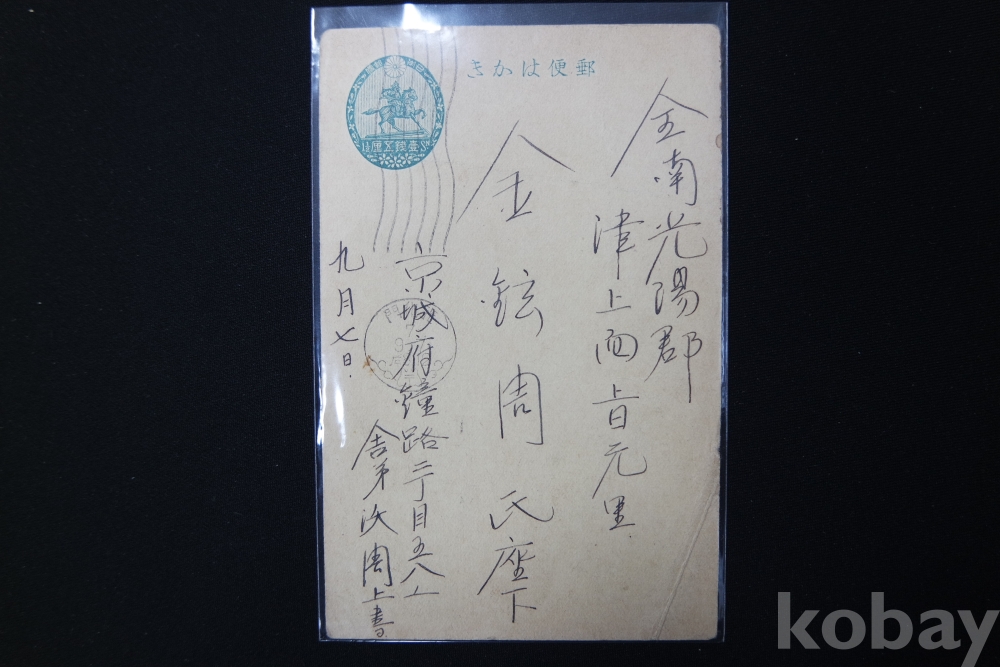 郵便はかき
壹錢五厘
全南光陽郡
津上面旨元里
金鉉周氏座下
京城府鐘路二丁目五八
舍弟洪周上書
九月七日
kobay